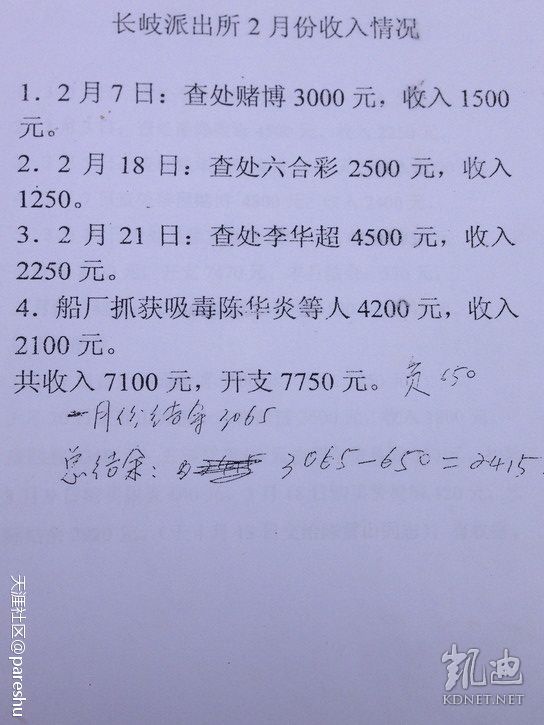 长岐派出所2月份收入情况
1．2月7日：查处赌博3000元，收入1500
元。
2．2月18日：查处六合彩2500元，收入
1250。
3．2月21日：查处李华超4500元，收入
2250元。
4．船厂抓获吸毒陈华炎等人4200元，收入
2100元。
共收入7100元，开支7750元。负650
一月份结余3065
总结余： 3065-650=2415
天涯社区@pareshu
凯迪
KDNET.NET